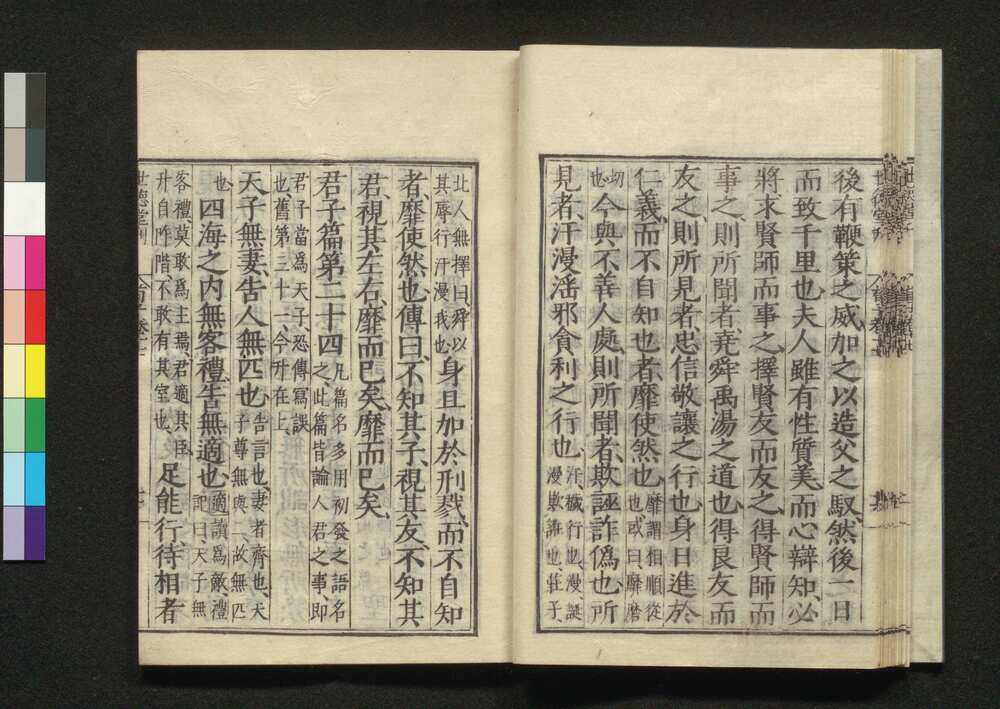 後有鞭策之威、加之以造父之馭、然後一日
而致千里也、夫人雖有性質美、而心辯知、必
將求賢師而事之、擇賢友而友之、得賢師而
事之、則所聞者、堯舜禹湯之道也、得良友而
友之、則所見者、忠信敬讓之行也、身日進於
仁義、而不自知也者、靡使然也、靡謂相順從也或曰靡磨
切也、今與不善人處、則所聞者、欺誣詐僞也、所
見者、汙漫淫邪貪利之行也、汙、穢行也、漫、誕漫欺誑也、莊子、
北人無擇曰、舜以其辱行汙漫我也、身且加於刑戮、而不自知
者、靡使然也、傳曰、不知其子、視其友、不知其
君、視其左右、靡而已矣、靡而已矣、
君子篇第二十四凡篇名多用初發之語名之、此篇皆論人君之事、即
君子當爲天子、恐傳寫誤也、舊第三十一、今升在上、
天子無妻、告人無匹也、告言也、妻者齊也、天子尊無與二、故無匹
也、四海之内無客禮、告無適也、適讀爲敵、禮記曰、天子無
客禮、莫敢爲主焉、君適其臣、升自阼階、不敢有其室也、足能行、待相者
世德堂刊